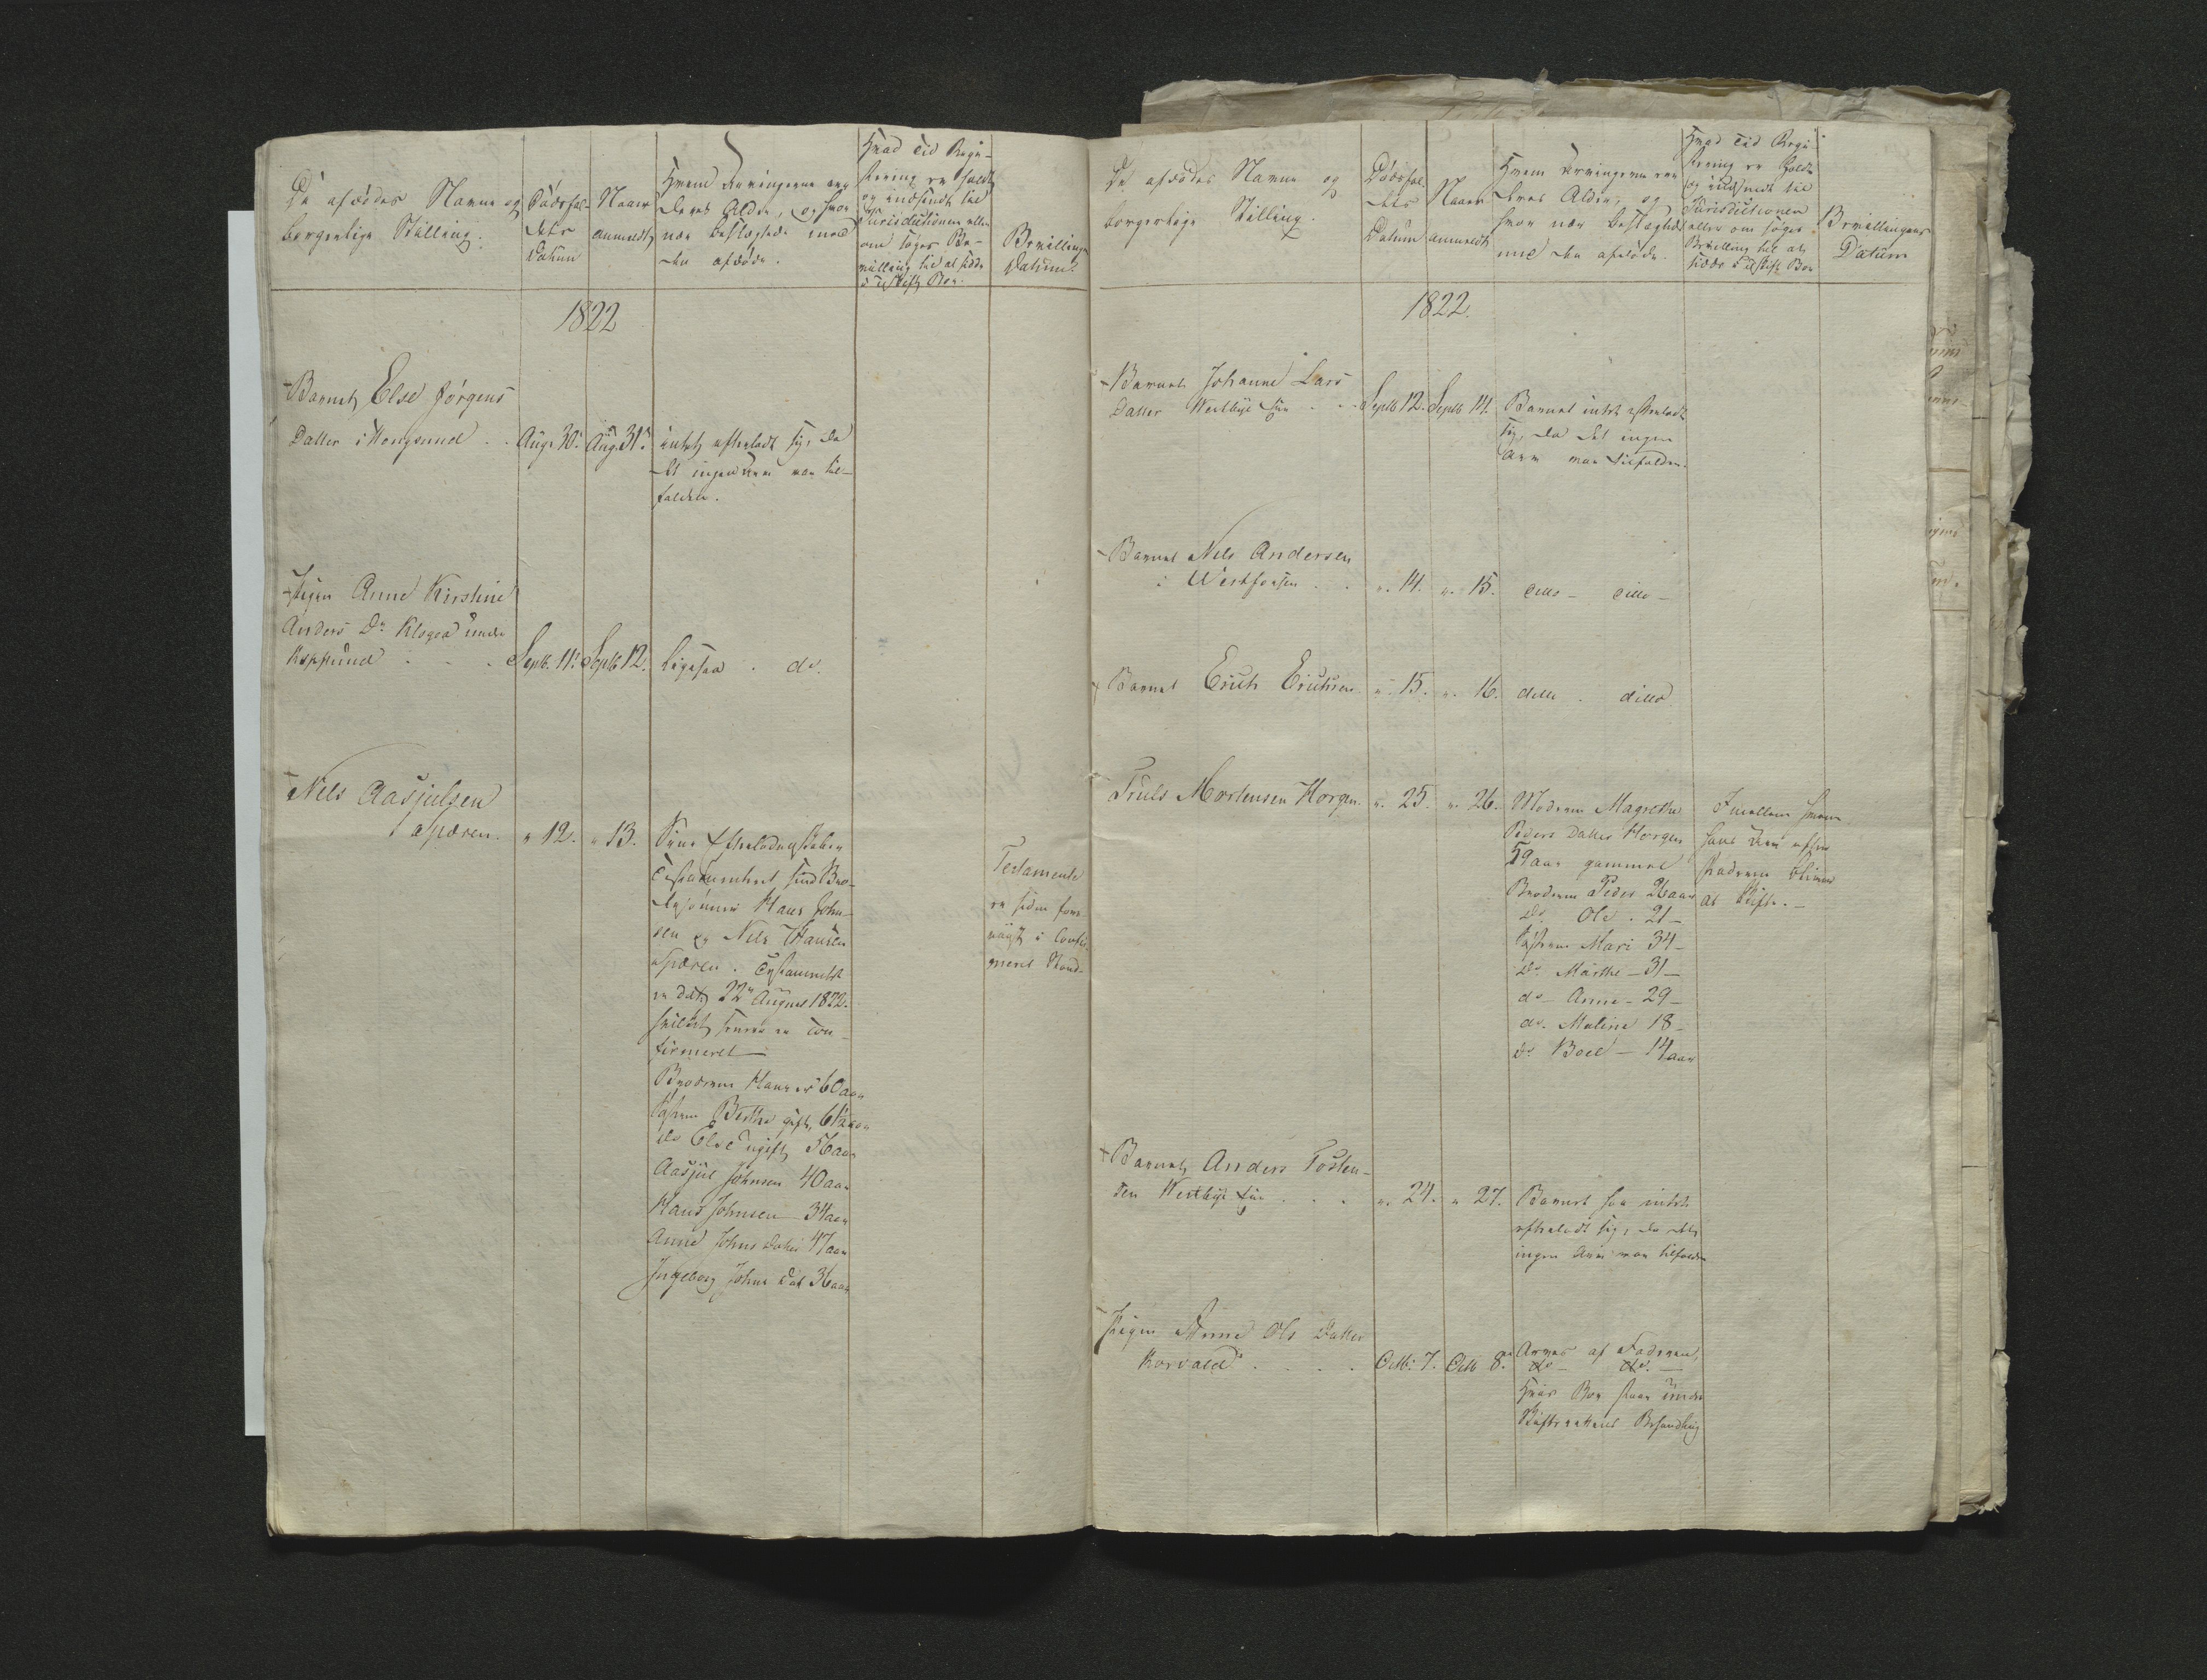 De afdødes Navne og
borgerlige Stilling.
Dødsfal-
dets
Datum
Naar
anmeldt
Hvem Arvingerne ere
deres Alder, og hvor
nær beslægtede med
den afdøde.
Hvad Tid Regi-
strering er holdt
og indsendt til
Jurisdictionen eller
om søges Be-
villing til at sidde
i uskift Boe.
Bevillingens
Datum.
1822
Barnet Else Jørgens
Datter i Hougsund . . Aug. 30. Aug. 31. intet efterladt sig, da
det ingen Arv var til-
falden.
Pigen Anne Kirstine
Anders Dr. Kloges under
Hopsund . . . Septb. 11. Septb. 12. ligesaa . do.
Nils Aasjulsen
Aspæren. " 12. " 13. Sine Efterladenskaber
Testamenteret sine Bro-
dersønner Hans John-
sen og Nils Hansen
Aspæren. Testamentet
er dat. 22de August 1822.
hvilket senere er Con-
firmeret
Broderen Hans er 60 aar
Søsteren Berthe gift, 61½ aar
do Else ugift 56 aar
Aasjul Johnsen 40 aar
Hans Johnsen 34 aar
Anne Johns Datter 47 aar
Ingeborg Johns Dat 36 aar
Testamente
er siden fore-
viist i Confir-
meret Stand
De afdødes Navne og
borgerlige Stilling.
Dødsfal-
dets
Datum
Naar
anmeldt
Hvem Arvingerne ere
deres Alder, og
hvor nær beslægtede
med den afdøde.
Hvad Tid Regi-
strering er holdt
og indsendt til
Jurisdictionen
eller om søges
Bevilling til at
sidde i uskift Boe
Bevillingens
Datum
1822.
Barnet Johanne Lars
Datter Westbye Eie . . Septb 12. Septb 14. Barnet intet efterladt
sig, da det ingen
Arv var tilfalden.
Barnet Nils Andersen
i Westfossen . . ". 14. ". 15. ditto - ditto -
Barnet Erich Erichsen. ". 15. ". 16. ditto . ditto
Truls Mortensen Horgen. ". 25. ". 26. Moderen Magrethe
Peders Datter Horgen
59 aar gammel
Broderen Peder 26 aar
Do Ole . 21 -
Søsteren Mari 34 -
Do Marthe - 31 -
do - Anne - 29 -
do. Maline 18 -
do Boel - 14 aar
Imellem hvem
hans Arv efter
Faderen bliver
at skifte. -
Barnet Anders Tosten-
sen Westbye Eie . . . ". 24. " 27. Barnet har intet
efterladt sig, da det
ingen Arv var tilfalden
Pigen Anne Ols Datter
Korvald . . . . Octb: 7. Octb 8. Arves af Faderen,
do - do. -
hvis Boe staar under
Skifterettens Behandling